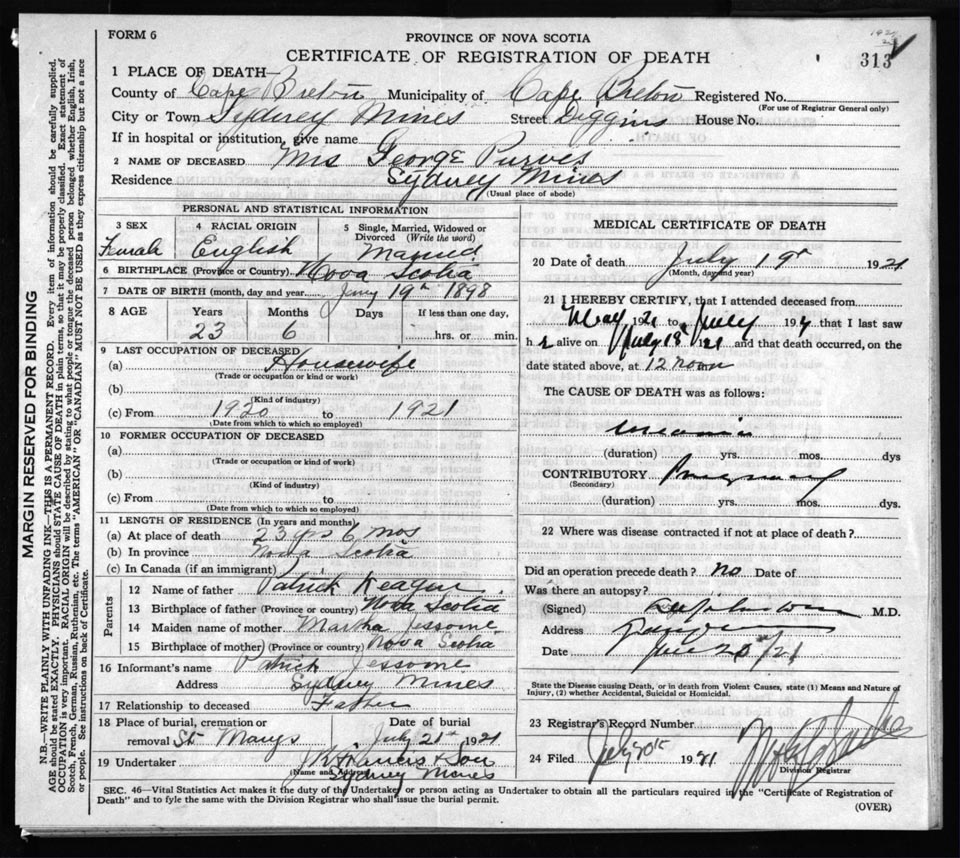 FORM 6
PROVINCE OF NOVA SCOTIA
CERTIFICATE OF REGISTRATION OF DEATH
313
MARGIN RESERVED FOR BINDING
N.B.—WRITE PLAINLY WITH UNFADING INK—THIS IS A PERMANENT RECORD. Every item of information should be carefully supplied.
AGE should be stated EXACTLY. PHYSICIANS should STATE CAUSE OF DEATH in plain terms, so that it may be properly classified. Exact statement of
OCCUPATION is very important. RACIAL ORIGIN will be described by stating to what people or tongue the deceased person belonged whether English, Irish,
Scotch, French, German, Russian, Ruthenian, etc. The terms "AMERICAN" OR "CANADIAN" MUST NOT BE USED as they express citizenship but not a race
or people. See instructions on back of Certificate.
1 PLACE OF DEATH—
County of Cape Breton Municipality of Cape Breton Registered No.
(For use of Registrar General only)
City or Town Sydney Mines Street Diggins House No.
If in hospital or institution, give name
2 NAME OF DECEASED Mrs George Purves
Residence Sydney Mines
(Usual place of abode)
PERSONAL AND STATISTICAL INFORMATION
3 SEX Female
4 RACIAL ORIGIN English
5 Single, Married, Widowed or Divorced (Write the word) Married
6 BIRTHPLACE (Province or Country) Nova Scotia
7 DATE OF BIRTH (month, day and year) 19th 1898
8 AGE Years Months Days If less than one day,
23 6 hrs. or min.
9 LAST OCCUPATION OF DECEASED
(a) Housewife
(Trade or occupation or kind or work)
(b)
(Kind of industry)
(c) From 1920 to 1921
(Date from which to which so employed)
10 FORMER OCCUPATION OF DECEASED
(a)
(Trade or occupation or kind of work)
(b)
(Kind of industry)
(c) From to
(Date from which to which so employed)
11 LENGTH OF RESIDENCE (In years and months)
(a) At place of death 23 yrs 6 mos
(b) In province Nova Scotia
(c) In Canada (if an immigrant)
Parents
12 Name of father Patrick
13 Birthplace of father (Province or country) Nova Scotia
14 Maiden name of mother Martha Jessome
15 Birthplace of mother (Province or country) Nova Scotia
16 Informant's name Patrick Jessome
Address Sydney Mines
17 Relationship to deceased Father
18 Place of burial, cremation or Date of burial
removal St Marys July 21st 1921
19 Undertaker & Son
(Name and Address) Sydney Mines
MEDICAL CERTIFICATE OF DEATH
20 Date of death July 19th 1921
(Month, day and year)
21 I HEREBY CERTIFY, that I attended deceased from
May 1921 to July 192 that I last saw
h alive on July 18 1921 and that death occurred, on the
date stated above, at 12 noon
The CAUSE OF DEATH was as follows:
(duration) yrs. mos. dys
CONTRIBUTORY Pregnancy
(Secondary)
(duration) yrs. mos. dys.
22 Where was disease contracted if not at place of death?
Did an operation precede death? no Date of
Was there an autopsy?
(Signed) M.D.
Address
Date /21
State the Disease causing Death, or in death from Violent Causes, state (1) Means and Nature of
Injury, (2) whether Accidental, Suicidal or Homicidal.
23 Registrar's Record Number
24 Filed July 20th 1921
Division Registrar
SEC. 46—Vital Statistics Act makes it the duty of the Undertaker or person acting as Undertaker to obtain all the particulars required in the "Certificate of Registration of
Death" and to fyle the same with the Division Registrar who shall issue the burial permit.
(OVER)